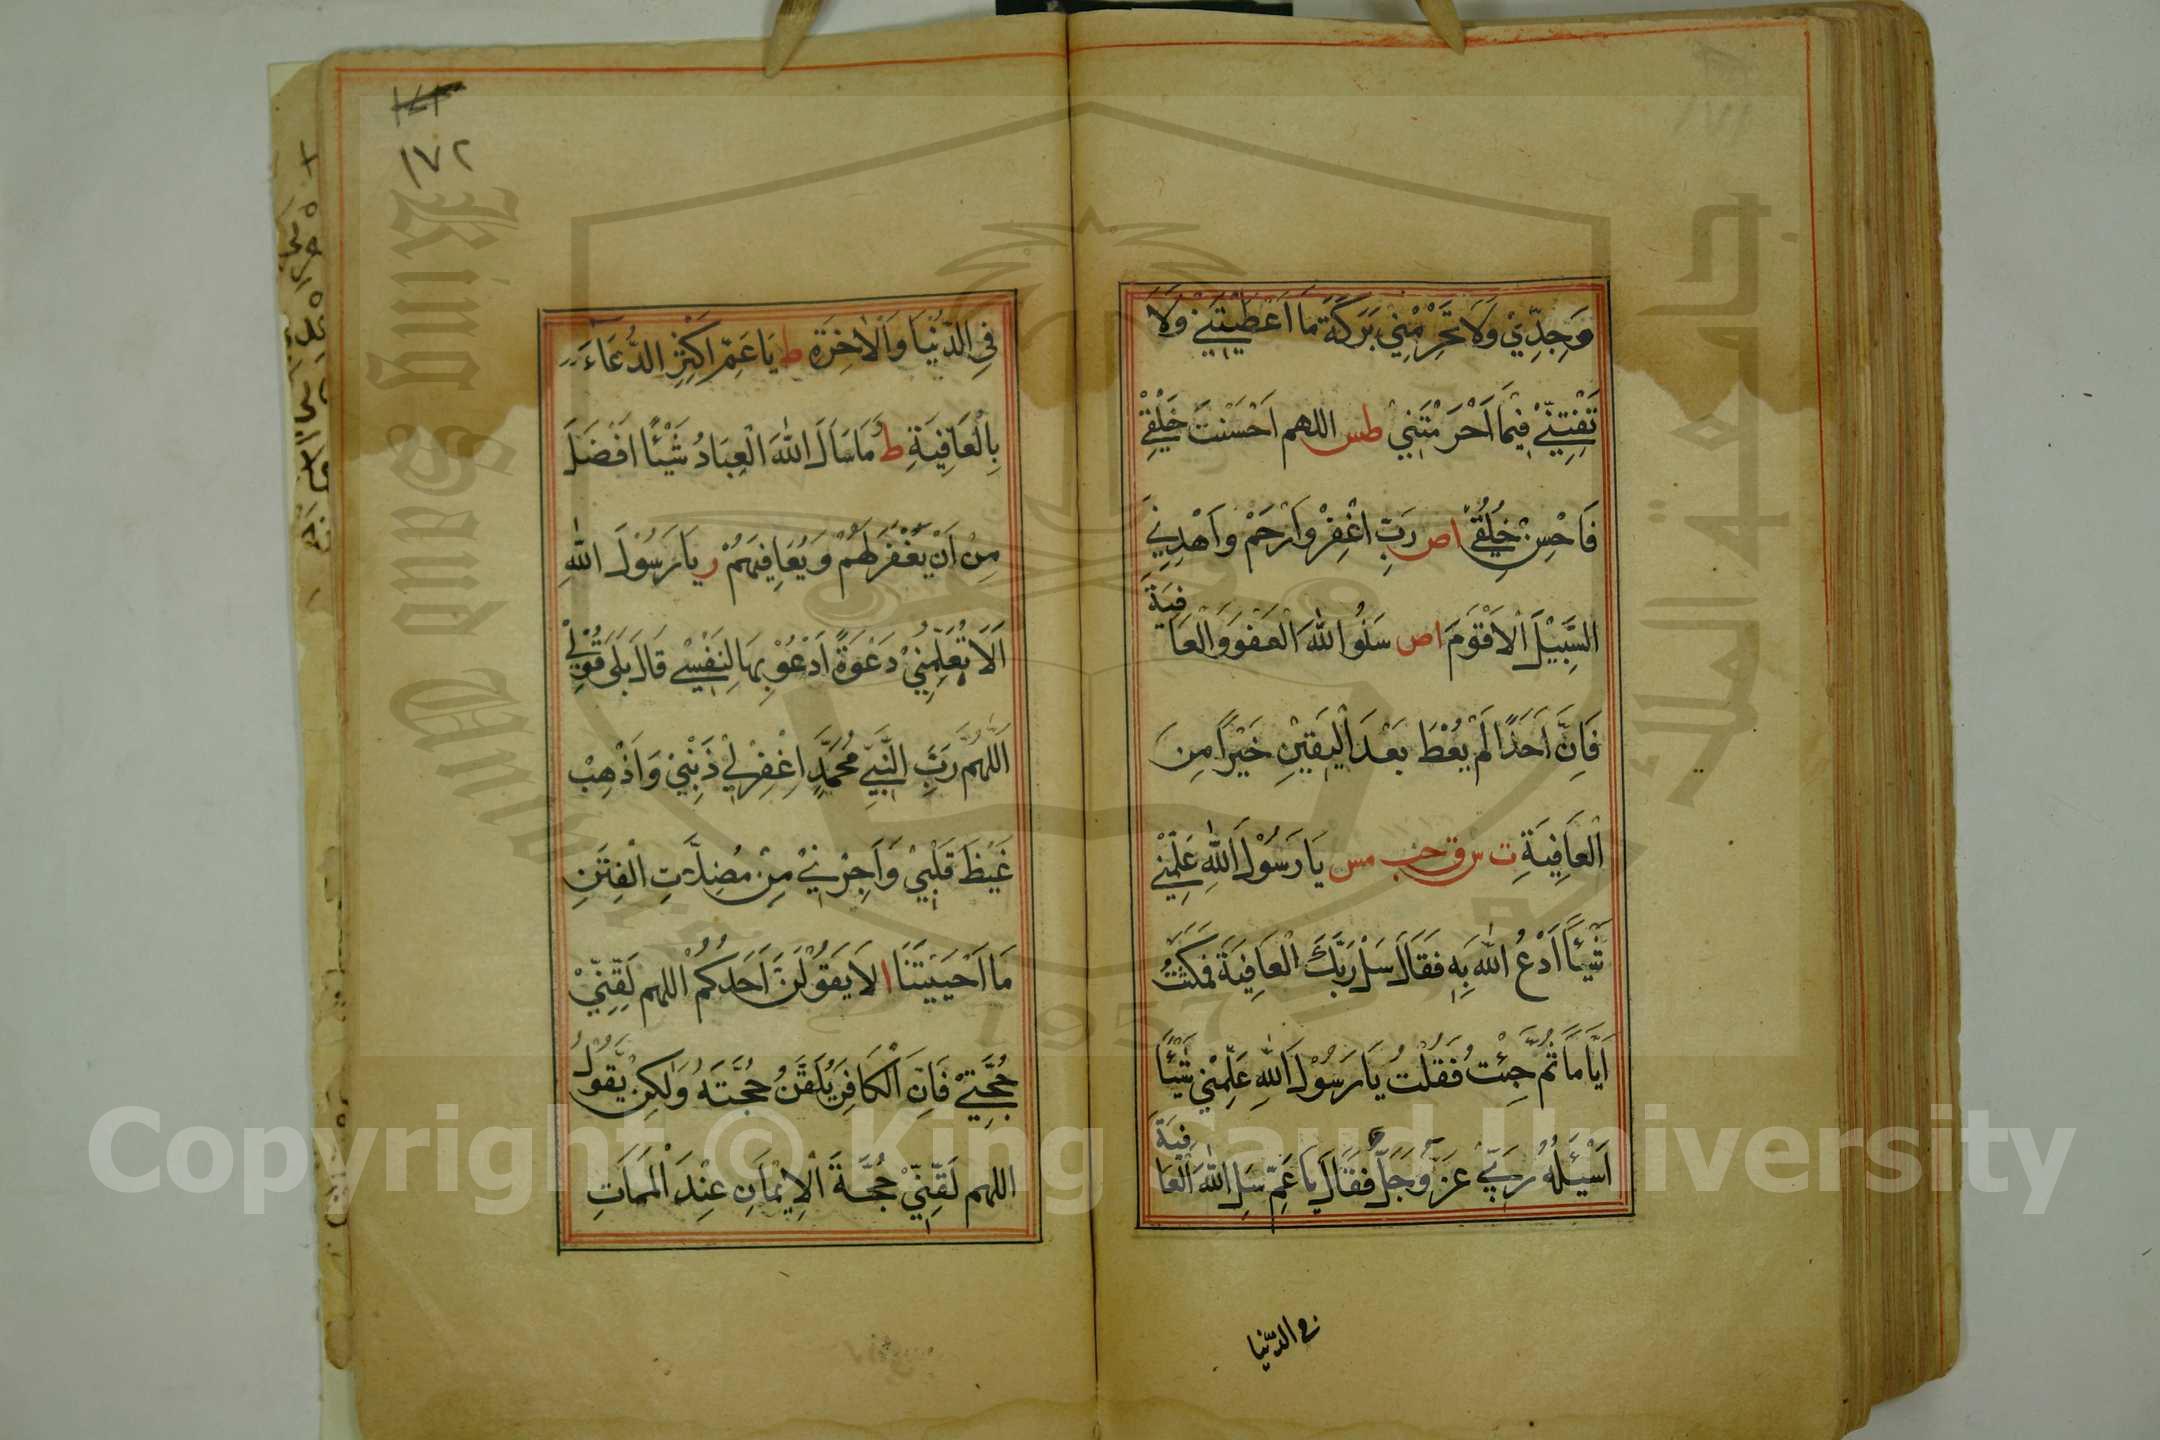 وَجِدِّيْ وَلَا تَحْرِمْنِيْ بَرَكَةَ مَا اَعْطَيْتَنِيْ وَلَا
تَفْتِنِّيْ فِيْمَا اَحْرَمْتَنِيْ طس اللهم اَحْسَنْتَ خَلْقِيْ
فَاَحْسِنْ خُلُقِيْ اص رَبِّ اغْفِرْ وَارْحَمْ وَاهْدِنِيْ
السَّبِيْلَ الْاَقْوَمَ اص سَلُوا اللّٰهَ الْعَفْوَ وَالْعَافِيَةَ
فَاِنَّ اَحَدًا لَمْ يُعْطَ بَعْدَ الْيَقِيْنِ خَيْرًا مِنَ
الْعَافِيَةِ ت س ق حب مس يَا رَسُوْلَ اللّٰهِ عَلِّمْنِيْ
شَيْئًا اَدْعُ اللّٰهَ بِهٖ فَقَالَ سَلْ رَبَّكَ الْعَافِيَةَ فَمَكَثْتُ
اَيَّامًا ثُمَّ جِئْتُ فَقُلْتُ يَا رَسُوْلَ اللّٰهِ عَلِّمْنِيْ شَيْئًا
اَسْئَلُهُ رَبِّيْ عَزَّ وَجَلَّ فَقَالَ يَا عَمِّ سَلِ اللّٰهَ الْعَافِيَةَ
في الدّنيا
١٧٢
فِي الدُّنْيَا وَالْاٰخِرَةِ ط يَا عَمِّ اَكْثِرِ الدُّعَاءَ
بِالْعَافِيَةِ ط مَا سَاَلَ اللّٰهَ الْعِبَادُ شَيْئًا اَفْضَلَ
مِنْ اَنْ يَغْفِرَ لَهُمْ وَيُعَافِيَهُمْ ر يَا رَسُوْلَ اللّٰهِ
اَلَا تُعَلِّمُنِيْ دَعْوَةً اَدْعُوْ بِهَا لِنَفْسِيْ قَالَ بَلٰى قُوْلِيْ
اَللّٰهُمَّ رَبَّ النَّبِيِّ مُحَمَّدٍ اغْفِرْ لِيْ ذَنْبِيْ وَاَذْهِبْ
غَيْظَ قَلْبِيْ وَاَجِرْنِيْ مِنْ مُضِلَّاتِ الْفِتَنِ
مَا اَحْيَيْتَنَا ا لَا يَقُوْلَنَّ اَحَدُكُمْ اللهم لَقِّنِّيْ
حُجَّتِيْ فَاِنَّ الْكَافِرَ يُلَقَّنُ حُجَّتَهُ وَلٰكِنْ يَّقُوْلُ
اللهم لَقِّنِّيْ حُجَّةَ الْاِيْمَانِ عِنْدَ الْمَمَاتِ
Copyright © King Saud University
King Saud University
جامعة الملك
1957